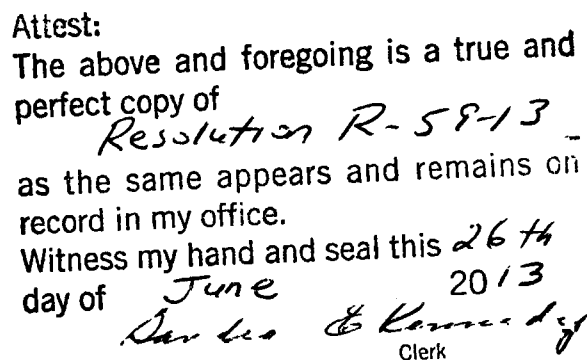 Attest:
The above and foregoing is a true and
perfect copy of
Resolution R-59-13
as the same appears and remains on
record in my office.
Witness my hand and seal this 26th
day of June 2013
E Kennedy
Clerk